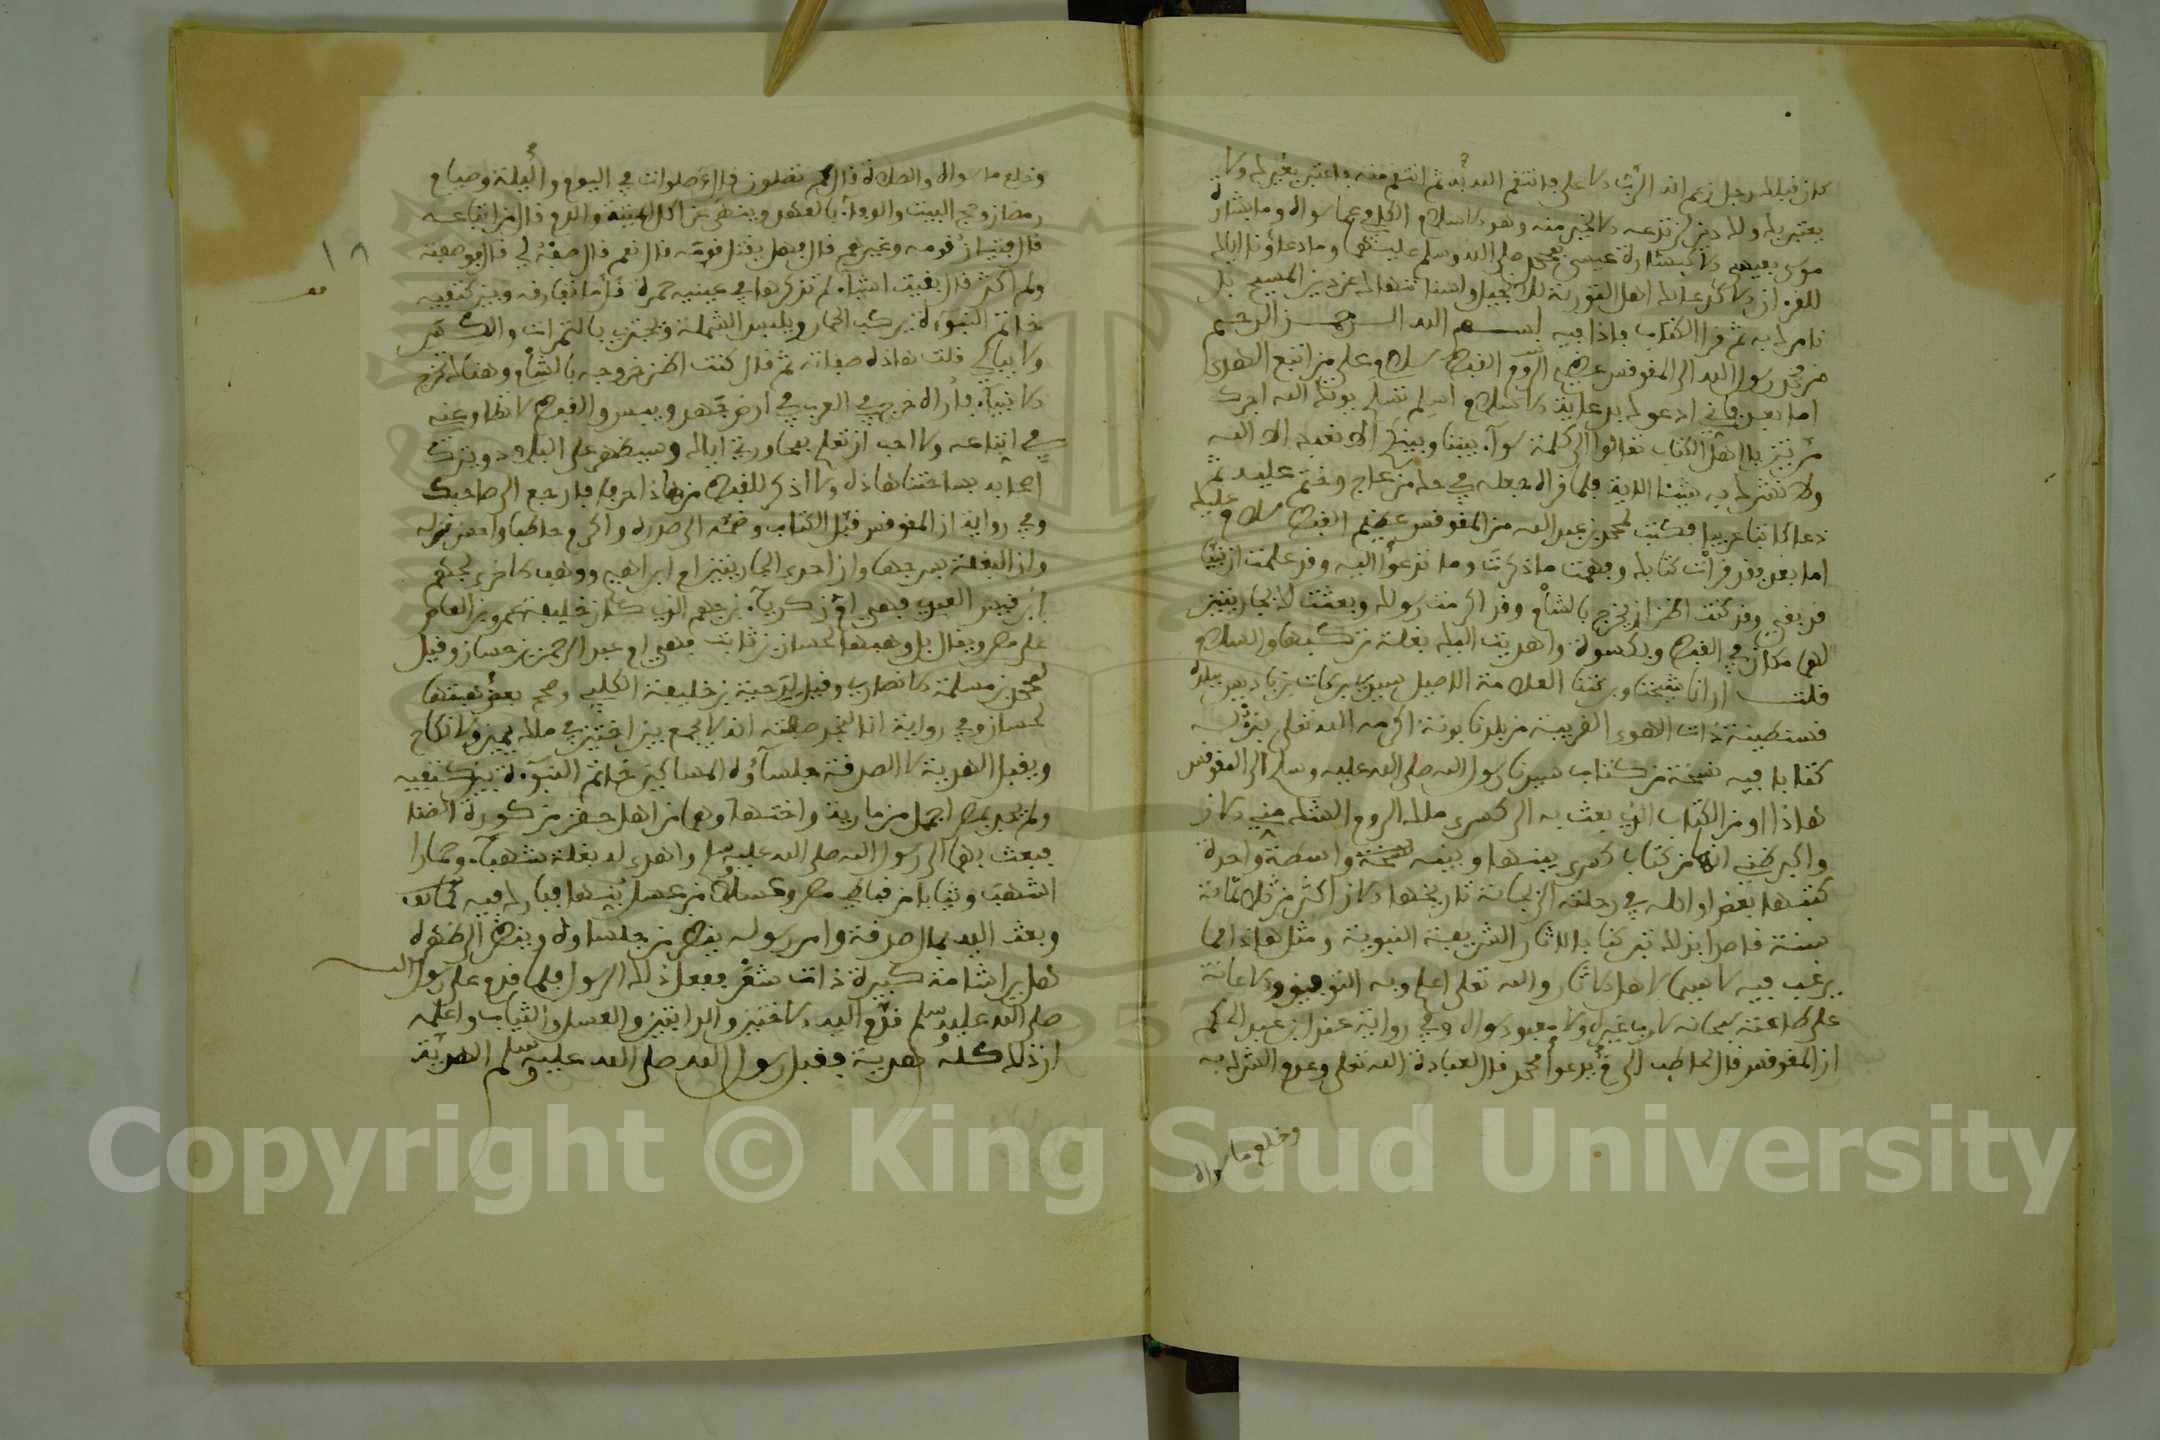 كان قبلك رجل زعم انه الرب الاعلى فانتقم الله به ثم انتقم منه فاعتبر بغيرك ولا
يعتبر بك ولك دين لن تدعه الا لخير منه وهو الاسلام الكافي عما سواه وما بشارة
موسى بعيسى الا كبشارة عيسى بمحمد صلى الله وسلم عليهما وما دعاؤنا اياك
للقران الا كدعائك اهل التورية للانجيل ولسنا ننهاك عن دين المسيح بل
نامرك به ثم قرا الكتاب فاذا فيه بسم الله الرحمن الرحيم
من محمد رسول الله الى المقوقس عظيم القبط سلام على من اتبع الهدى
اما بعد فاني ادعوك بدعاية الاسلام اسلم تسلم يوتك الله اجرك
مرتين يا اهل الكتاب تعالوا الى كلمة سوآء بيننا وبينكم الا نعبد الا الله
ولا نشرك به شيئا الاية فلما قراه جعله في حق من عاج وختم عليه ثم
دعا كاتبا عربيا فكتب لمحمد بن عبد الله من المقوقس عظيم القبط سلام عليك
اما بعد فقد قرات كتابك وفهمت ما ذكرت وما تدعوا اليه وقد علمت ان نبيا
قد بقي وقد كنت اظن ان يخرج بالشام وقد اكرمت رسولك وبعثت لك بجاريتين
لهما مكان في القبط وبكسوة واهديت اليك بغلة تركبها والسلام
قلت ارانا شيخنا وبركتنا العلامة الاصيل سيدي بركات بن باديس ببلده
قسنطينة ذات الهوى القريبة من بلدنا بونة اكرمه الله تعلى
كتابا فيه نسخة من كتاب سيدنا رسول الله صلى الله عليه وسلم الى المقوقس
هاذا او من الكتاب الذي بعث به الى كسرى ملك الروم الشك مني الان
واكبر ظني انها من كتاب كسرى بينها وبينه نسخة واسطة واحدة
كتبها بعض اوائله في رحلته الى بجاية تاريخها الان اكثر من ثلاثماية
سنة قاصدا بذلك تبركنا بالاثار الشريعة النبوية ومثل هاذا مما
يرغب فيه لا سيما لاهل الاثار والله تعلى اعلم وبه التوفيق والاعانة
على طاعته سبحانه لا رب غيره ولا معبود سواه وفي رواية عند ابن عبد الحكم
ان المقوقس قال لحاطب الى م يدعوا محمد قال لعبادة الله تعلى وعدم الشرك به
وخلع ما سواه
وخلع ما سواه والصلاة قال كم تصلون قال ٥ صلوات في اليوم والليلة وصيام
رمضان وحج البيت والوفآء بالعهد وينهى عن اكل الميتة والدم قال من اتباعه
قال الفتيان قومه وغيرهم قال فهل يقتل قومه قال نعم قال صفه لي قال فوصفته
ولم اكثر قال بقيت اشيآء لم تذكرها في عينيه حمرة قل ما تفارقه وبين كتفيه
خاتم النبوءة يركب الحمار ويلبس الشملة ويجتزي بالتمرات والكسر
ولا يبالي قلت هاذه صفاته ثم قال كنت اظن خروجه بالشام وهناك مخرج
الانبيآء فاراه خرج في العرب في ارض جهد وبؤس والقبط لا تطاوعني
في اتباعه ولا احب ان تعلم بمحاورتي اياك وسيظهر على البلاد وينزل
اصحابه بساحتنا هاذه ولا اذكر للقبط من هاذا حرفا فارجع الى صاحبك
وفي رواية ان المقوقس قبل الكتاب وضمه الى صدره واكرم حاطبا واحسن نزله
وان البغلة بسرجها وان احدى الجاريتين ام ابراهيم ووهب الاخرى لجهم
ابن قيس العبدي فهي ام زكريآء بن جهم الذي كان خليفة عمرو بن العاص
على مصر ويقال بل وهبها لحسان بن ثابت فهي ام عبد الرحمن بن حسان وقيل
لمحمد بن مسلمة الانصاري وقيل لدحية بن خليفة الكلبي وصحح بعض هبتها
لحسان وفي رواية انا لنجد صفته انه لا يجمع بين اختين في ملك يمين ولا نكاح
ويقبل الهدية لا الصدقة جلسآؤه المساكين خاتم النبوءة بين كتفيه
ولم يجد بمصر اجمل من مارية واختها وهما من اهل حفن من كورة انصنا
فبعث بهما الى رسول الله صلى الله عليه وسلم واهدى له بغلة شهبآء وحمارا
اشهب وثيابا من قباطي مصر وعسلا من عسل بنها فبارك فيه
وبعث اليه بمال صدقة وامر رسوله ينظر من جلساؤه وينظر الى ظهره
هل يرا شامة كبيرة ذات شعر ففعل ذلك الرسول فلما قدم على رسول الله
صلى الله عليه وسلم قدم اليه الاختين والدابتين والعسل والثياب واعلمه
ان ذلك كله هدية فقبل رسول الله صلى الله عليه وسلم الهدية
١٨
Copyright © King Saud University
1957